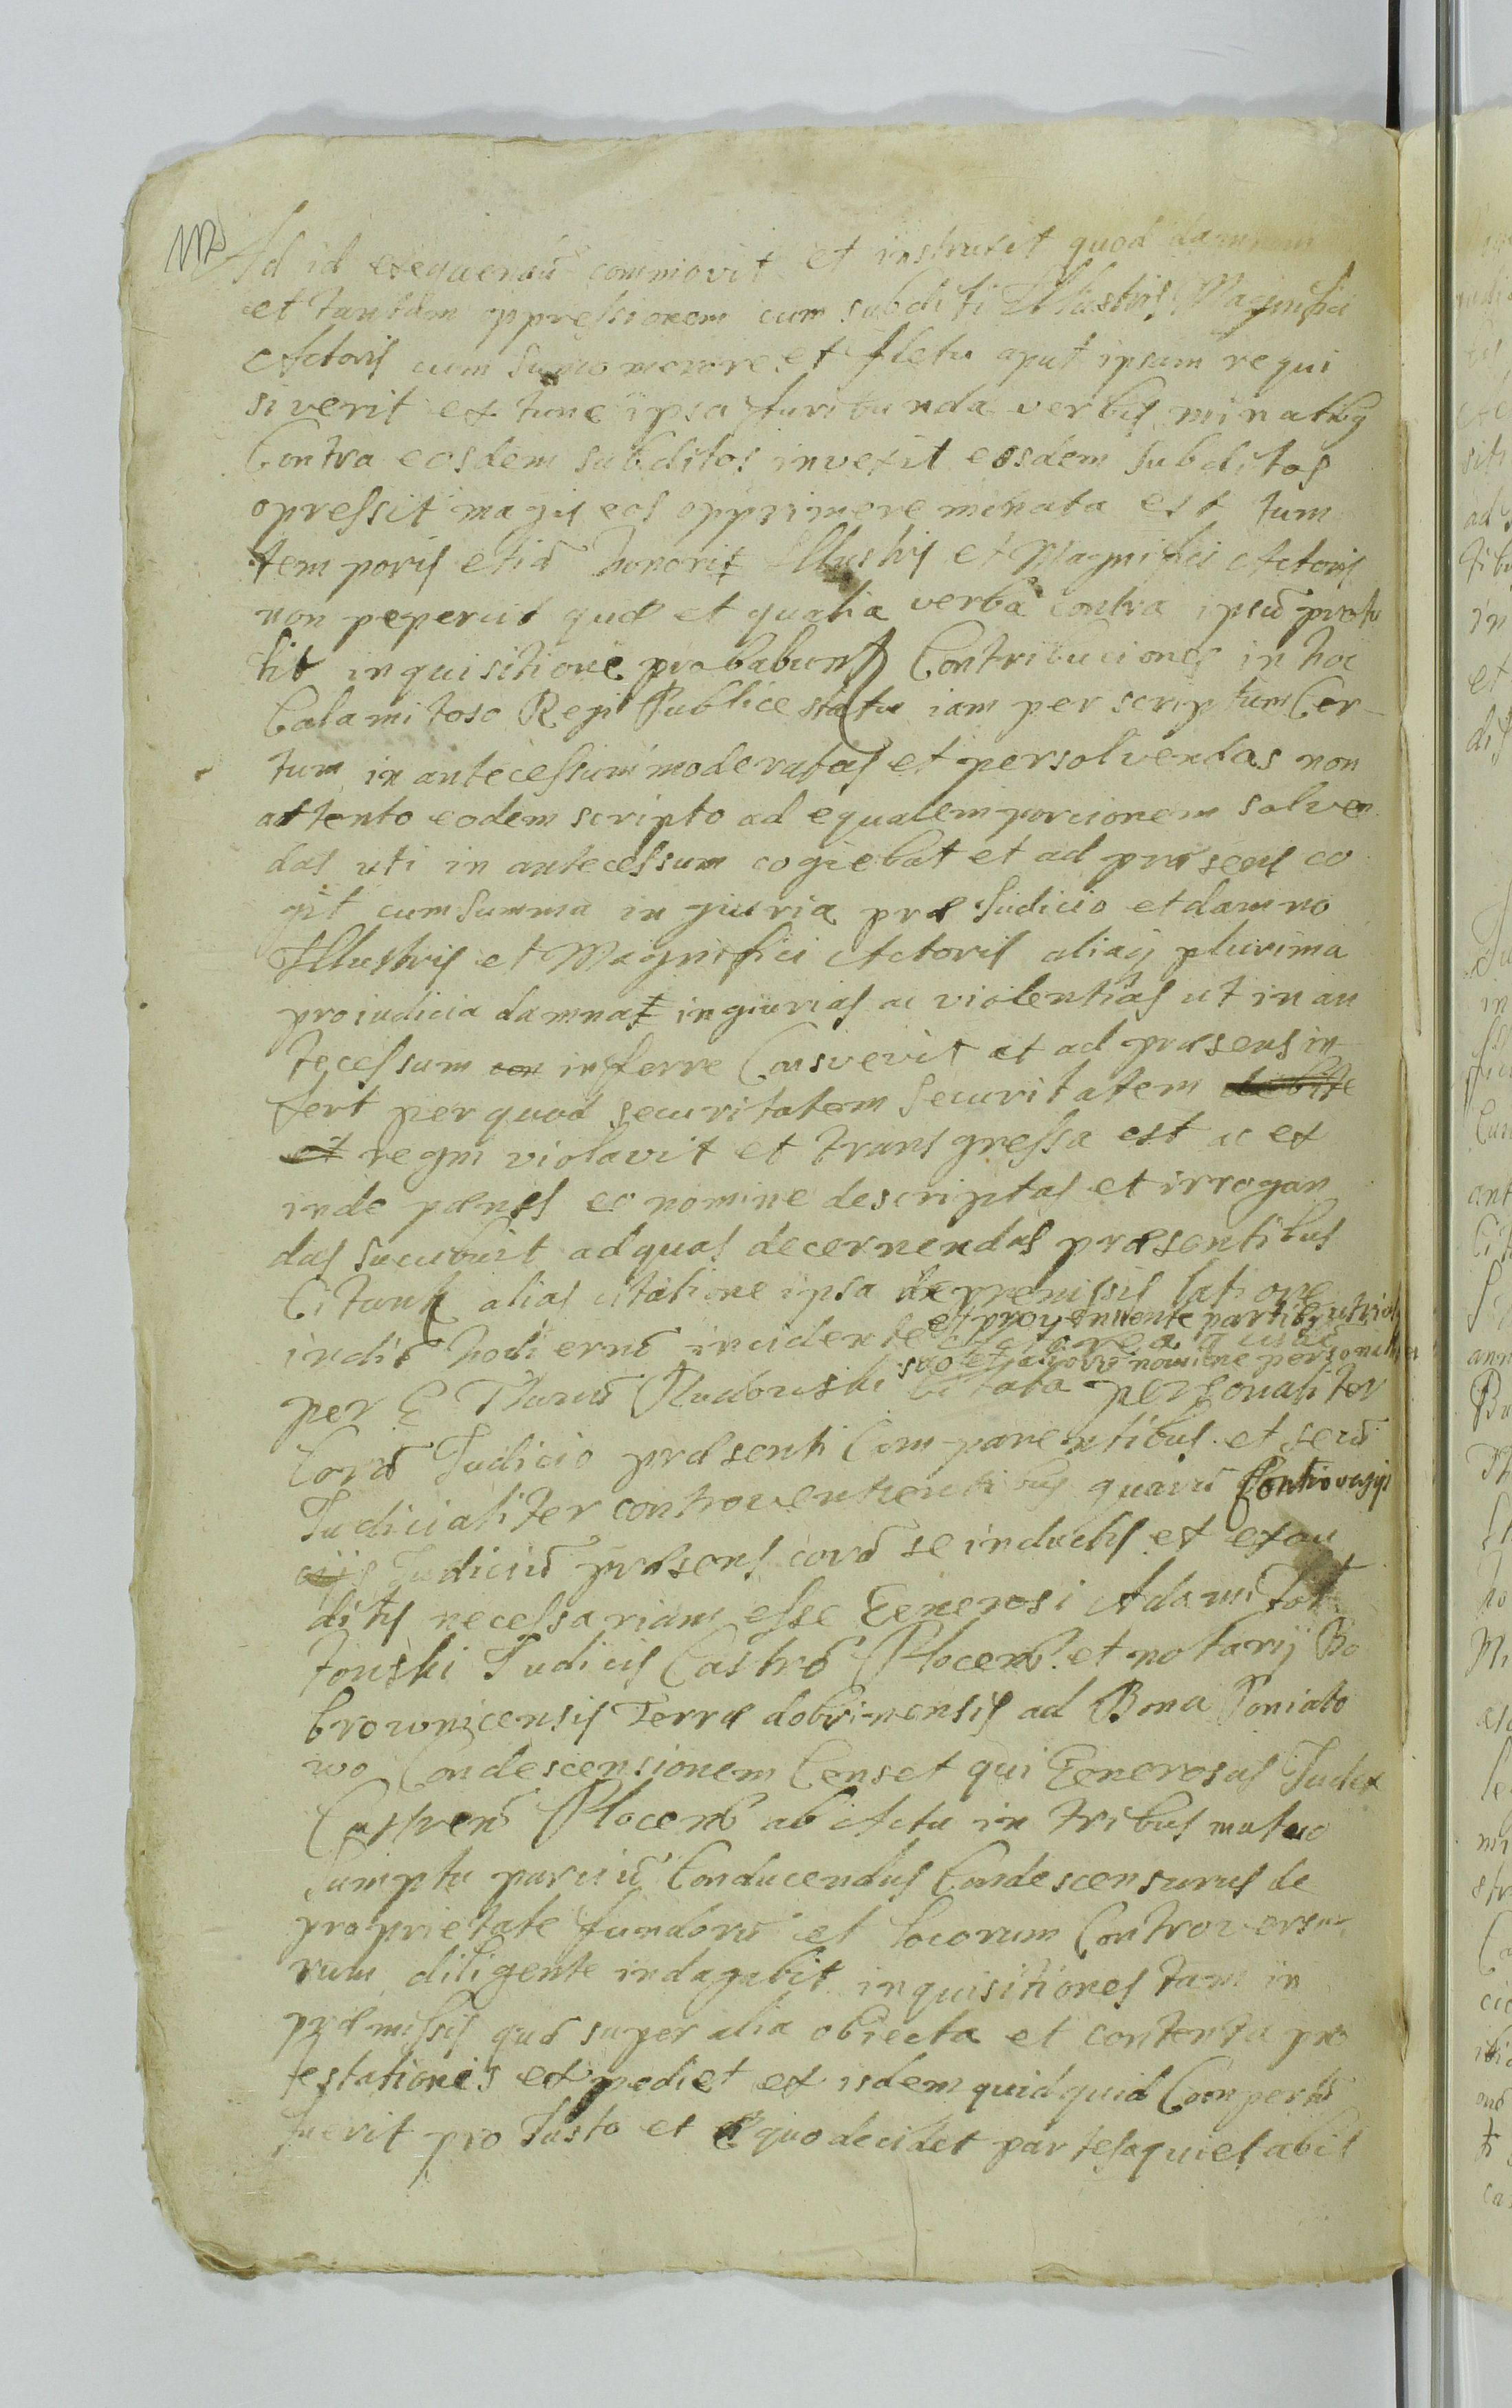 Ad id exequendū commovit et instruxit quod damnum
et tantam oppressionem cum subditi Illustris Magnifici
Actoris cum sumo merore et fletu aput ipsum requi
siverit ex tunc ipsa furibunda verbis minatby
Contra eosdem subditos invexit eosdem subditos
opressit magis eos opprimere minata est tum
temporis etiā honori Illustris et Magnifici Actoris
non pepercit quæ et qualia verba contra ipsū protu
lit inquisitione probabunt Contribuciones in hoc
Calamitoso Regi Publice statu iam per scriptum Cer-
tum in antecessum moderatas et persolvendas non
attento eodem scripto ad equalem porcionem solven
das uti in antecessum cogiebat et ad præsens co
git cum summa ingiuria præJudicio et damno
Illustris et Magnifici Actoris aliaq plurima
proiudicia damna ingiurias ac violentias ut in an
tecessum inferre Consvevit et ad præsens in
fert per quod securitatem securitatem debite
et regni violavit et transgressa est ac ex
inde pænas eo nomine descriptas et irrogan
das sucubuit ad quas decernendas præsentibus
Citant alias citatione ipsa de premissis latiore
et proveniente partiby utrisq
in diē hodiernū incidente Actorea
suo et nomine personaliter
per G Thamā Rudowski Citata personaliter
Corā Judicio præsenti Comparentibus et secū
Judicialiter controvertentibus quarū Controversijs
Judiciū præsens corā se inductis et exau
ditis necessariam esse Generosi Adami Zot
towski Judicis Castrē Plocens et notarij Bo
brownicensis Terræ dobrinensis ad Bona Poniato
wo Condescensionem Censet qui Generosus Judex
Castren Plocens ab Actu in tribus mutuo
Sumptu parciū Conducendus Condescensurus de
proprietate fundorū et locorum Controverso
rum diligente indagabit inquisitiones tam in
præmissis quā super alia obiecta et contenta pro
testationes expediet ex isdem quidquid Compertū
fuerit pro Justo et Æquo decidet partes aquietabit